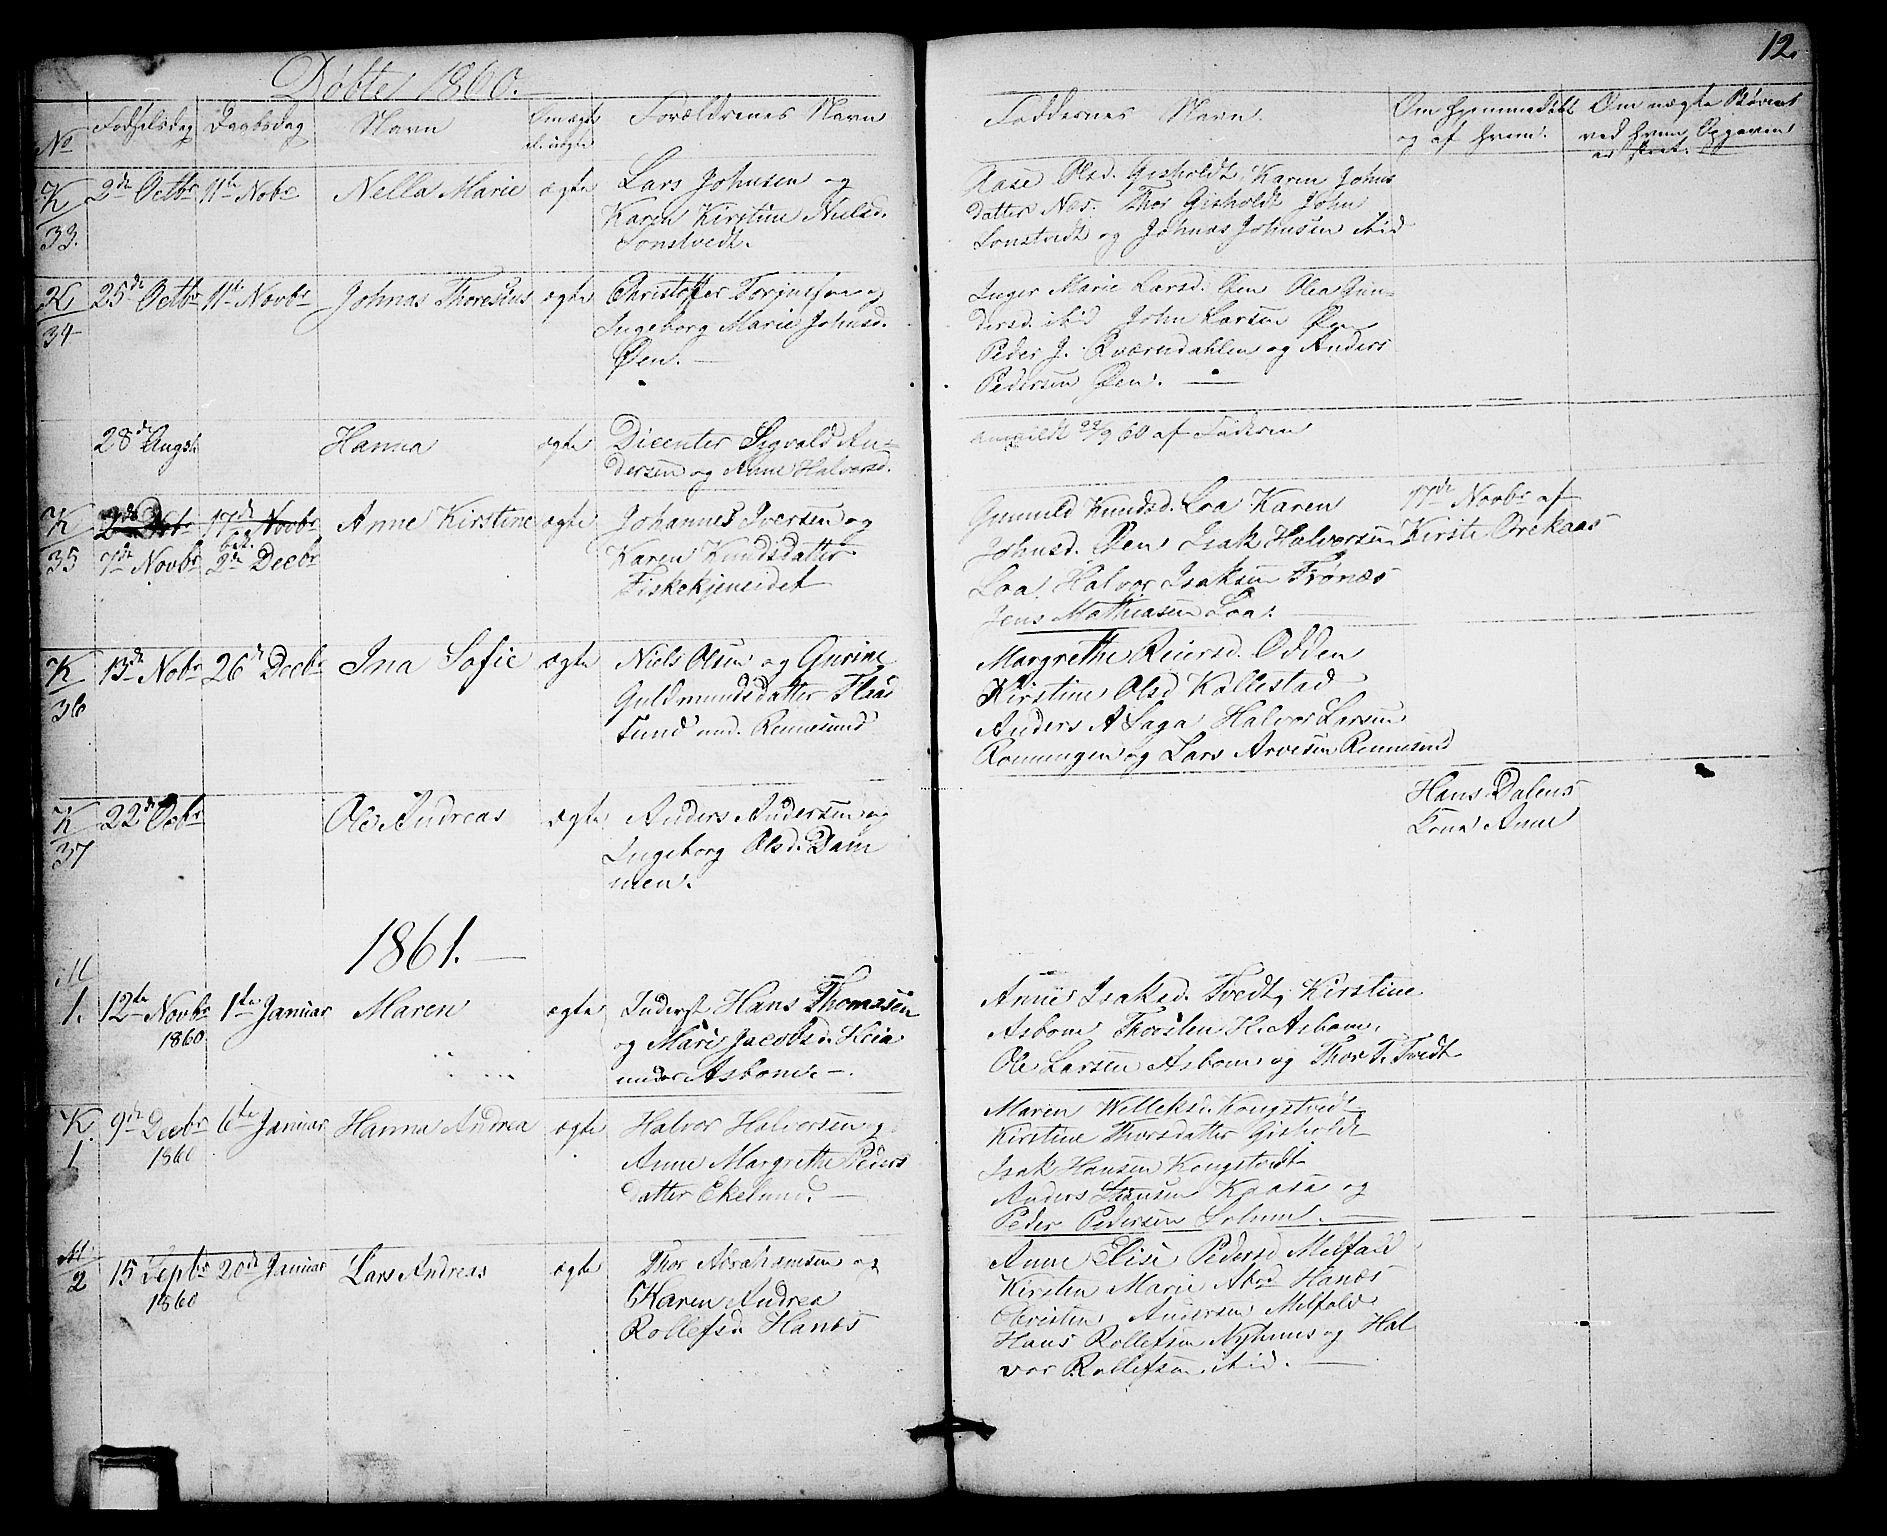 12.
Døbte 1860.
No
Fødselsdag
Daabsdag
Navn
Om ægte
el. uægte
Forældrenes Navn
Faddernes Navn.
Om hjemmedøbt
og af hvem.
Om uægte Børn
ved hvem Opgaven
er skeet.
K
33.
2de Octbr
11te Nobr
Nella Marie
ægte
Lars Johnsen og
Karen Kirstine Nielsd.
Lonstvedt.
Aase Olsd. Gisholdt, Karen Johns
datter Thor Gisholdt John
Lonstvedt og Johnas Johnsen ibid
K
34
25de Octbr
11te Novbr
Johnas Thoresius
ægte
Christoffer Torjusen og
Ingeborg Marie Johnsd.
Øen. —
Inger Marie Larsd. Øen Olea Gun-
dersd. ibid John Larsen Øen
Peder J. Qværndahlen og Anders
Pedersen Øen. —
28de Augst
Hanna
ægte
Dicenter Sigvald An-
dersen og Anne Halvorsd.
anmeldt 22/9 60 af Faderen
K
35
17de Novbr
7de Novbr
2de Decbr
Anne Kirstine
ægte
Johannes Iversen og
Karen Knudsdatter
Fiskekjeneidet
Gunnild Knudsd. Loa Karen
Johnsd. Øen Isak Halvorsen
Loa, Halvor Isaksen Trønæs
Jens Mathiasen Loa.
17de Novbr af
Kirsti Brekaas
K
36
13de Nobr
26de Decbr
Ina Sofie
ægte
Niels Olsen og Gurine
Guldmundsdatter Flaa
Sund und. Rennesund
Margrethe Reiersd. Odden
Kirstine Olsd Kallestad
Anders A Laga, Halvor Larsen
Ronningen og Lars Arvesen Rennesund
K
37
22de Octbr
Ole Andreas
ægte
Anders Andersen og
Ingeborg Olsd. Dam
men.
Hans Dalens
Kona Anne
1861. —
M
1.
12te Novbr
1860
1te Januar
Maren
ægte
Inderst Hans Thomasen
og Mari Jacobsd. Heia
under Asbom. —
Anne Isaksd. Tvedt, Kirstine
Asbom Thorsten K. Asbom,
Ole Larsen Asbom og Thor T. Tvedt
K.
1
9de Decbr
1860
6te Januar
Hanna Andrea
ægte
Halvor Halvorsen og
Anne Margrethe Peders
datter Ekelund. —
Maren Welleksd. Kongstvedt
Kirstine Thorsdatter Gisholdt
Isak Hansen Kongstvedt
Anders Hansen Kaasa og
Peder Pedersen Solum. —
M.
2
15 Septbr
1860
20de Januar
Lars Andreas
ægte
Thor Abrahamsen og
Karen Andrea
Rollefsd. Hanæs
Anne Elise Pedersd Melfald
Kirsten Marie Abrd Hanæs
Christen Andersen Melfald
Hans Rollefsen Nyhuus og Hal
vor Rollefsen ibid. —